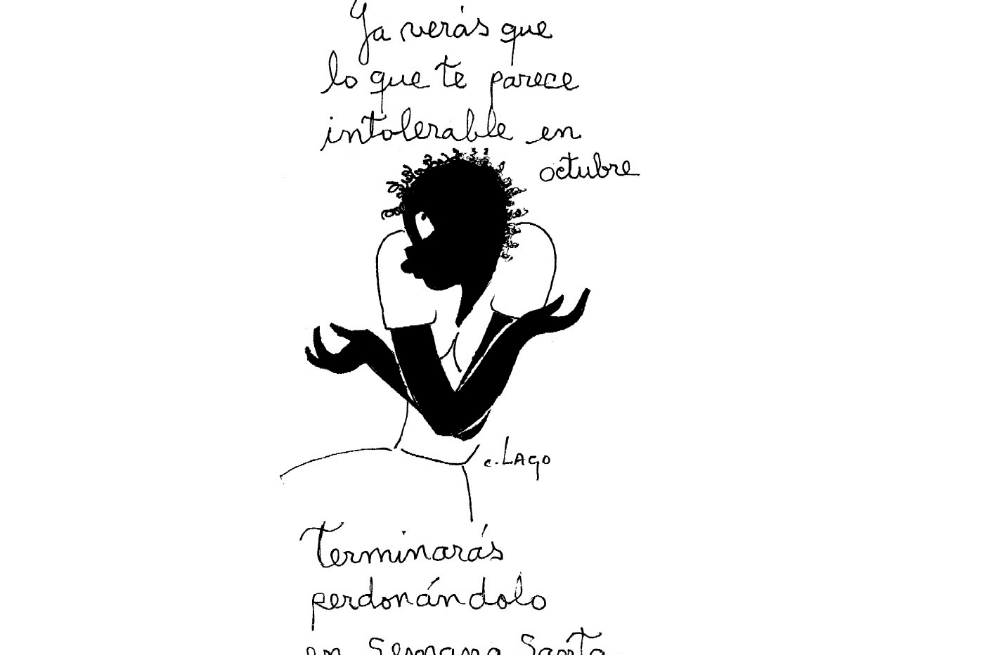 Ya verás que
lo que te parece
intolerable en
octubre
c. LAgo
Terminarás
perdonándolo
en Semana Santa